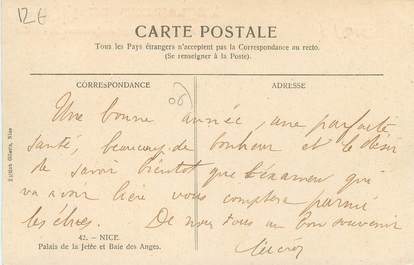 12 €
CARTE POSTALE
Tous les Pays étrangers n'acceptent pas la Correspondance au recto.
(Se renseigner à la Poste).
CORRESPONDANCE
ADRESSE
06
Une bonne année, une parfaite
santé, beaucoup de bonheur et le désir
de savoir bientôt que l'examen qui
va avoir lieu vous comptera parmi
les élus. De nous tous un bon souvenir
42. — NICE.
Palais de la Jetée et Baie des Anges.
Edition Giletta, Nice